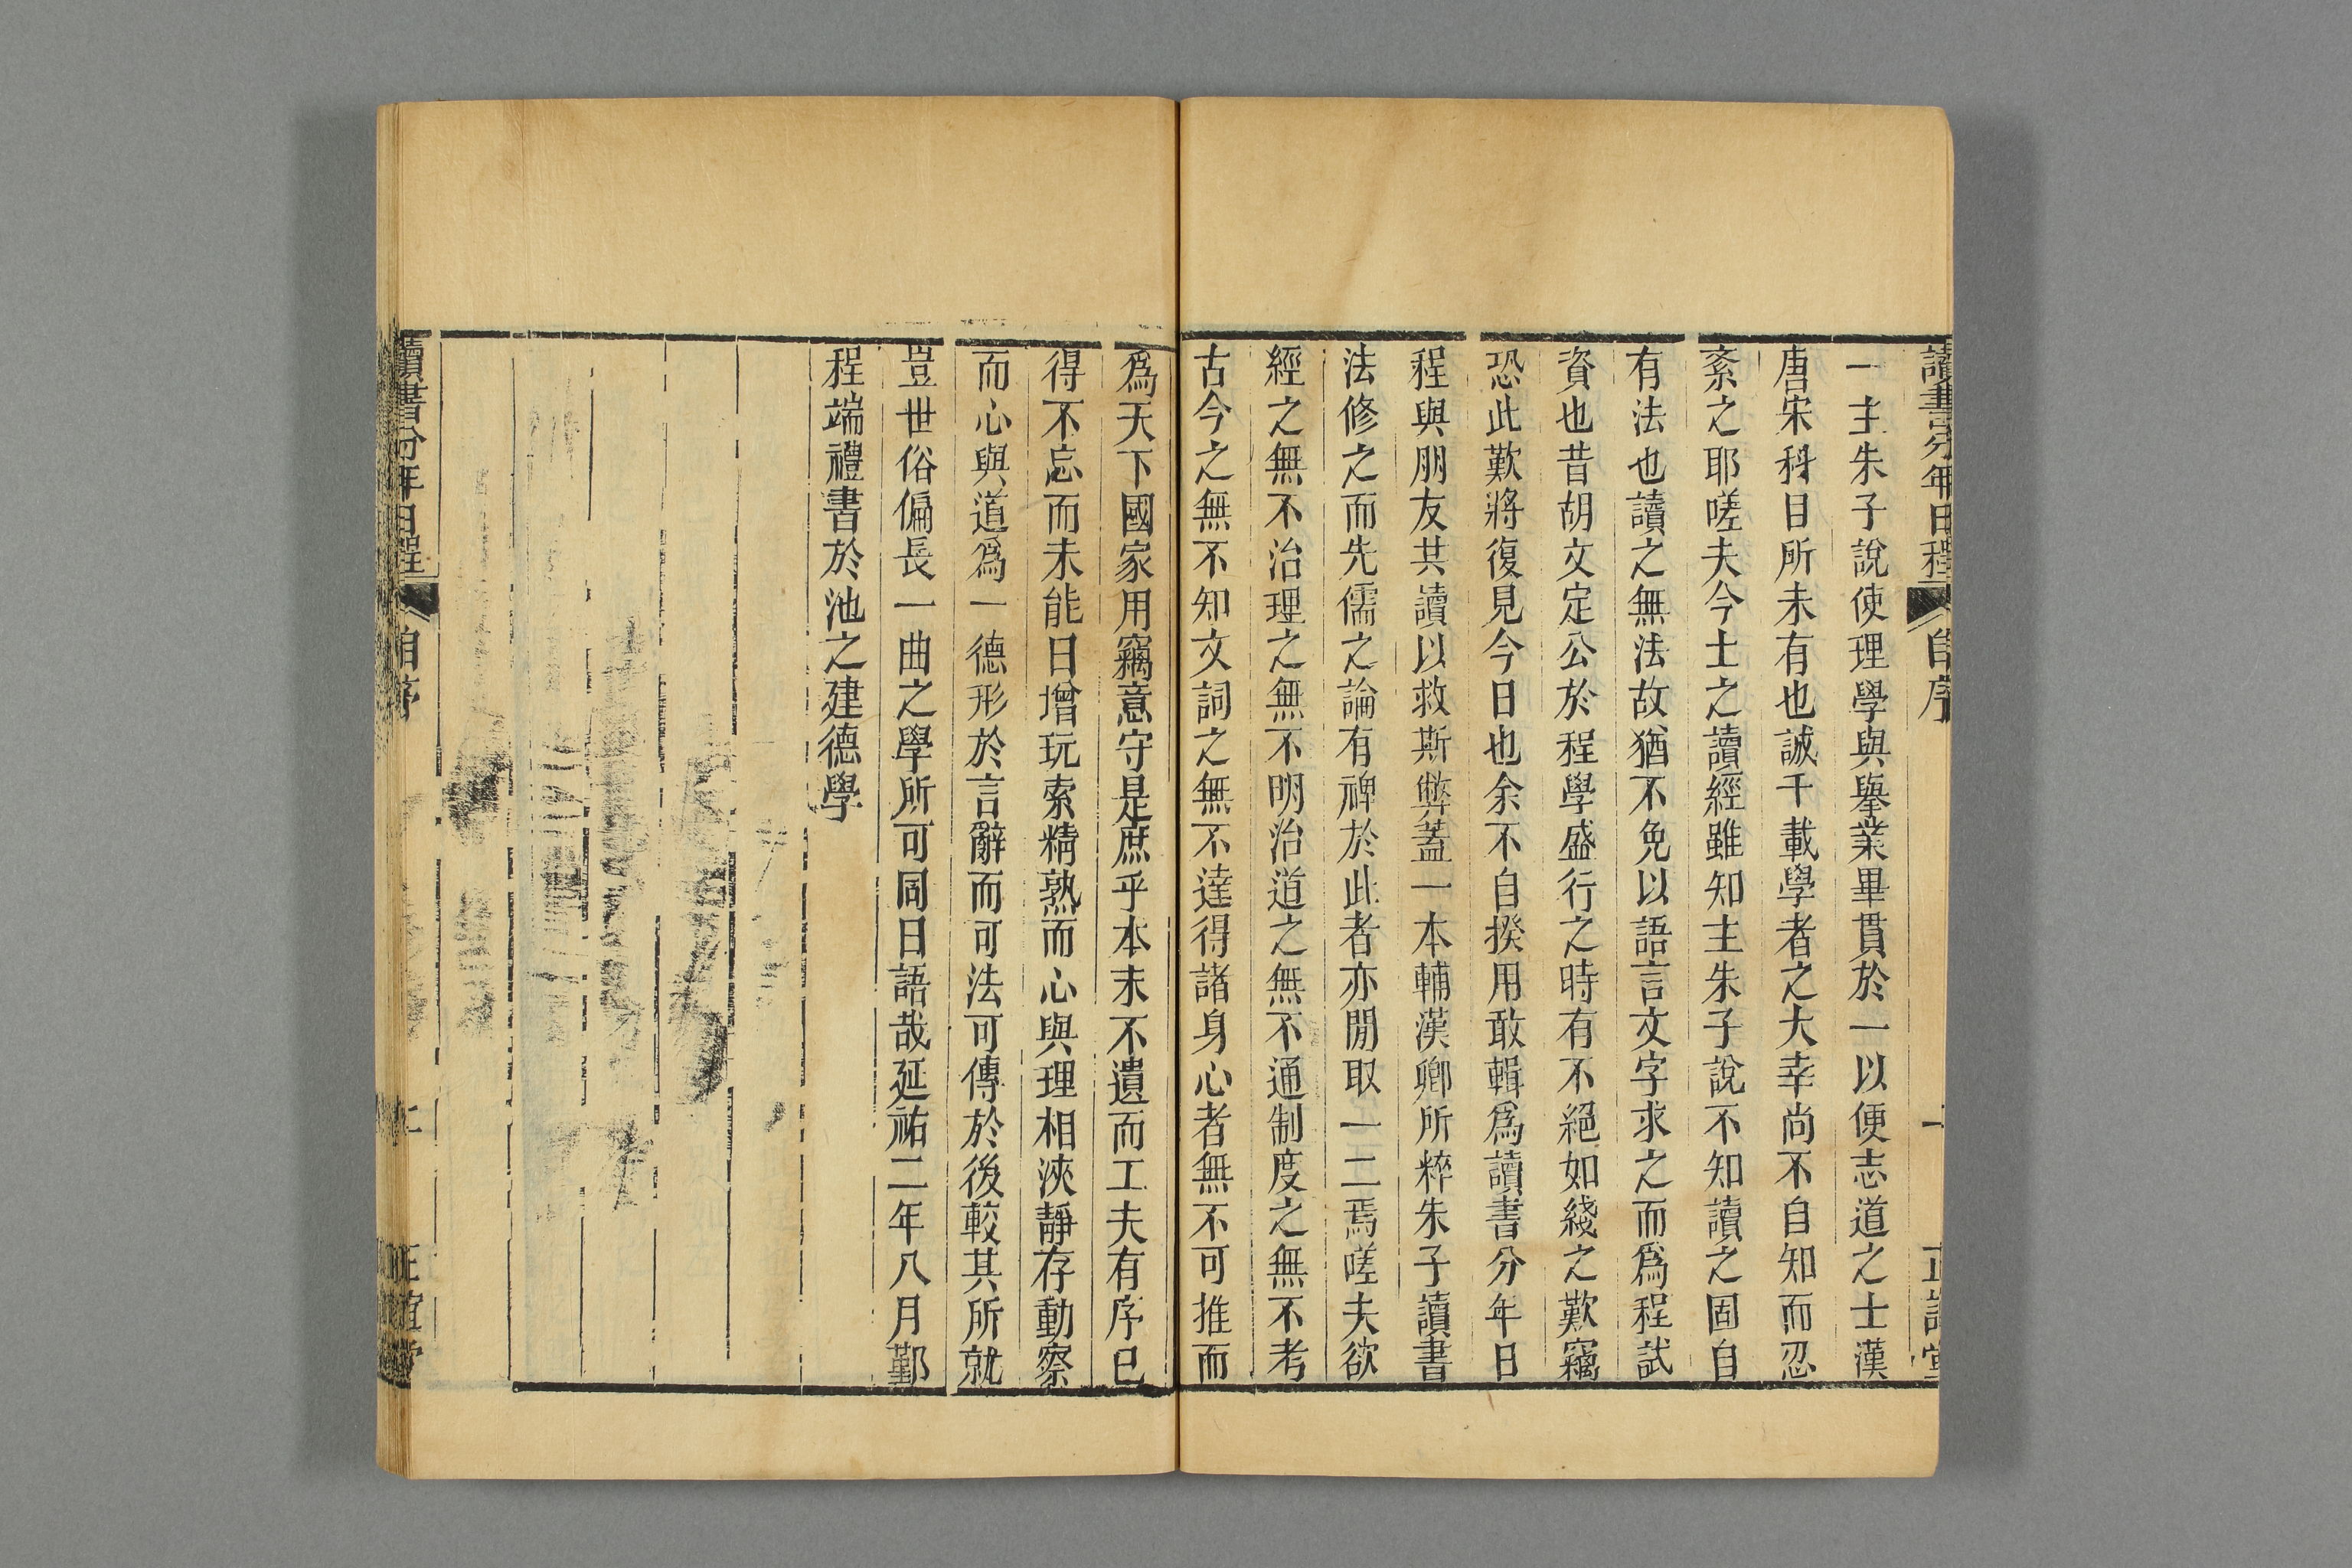 讀書分年日程
自序
一
正誼堂
一主朱子說使理學與舉業畢貫於一以便志道之士漢
唐宋科目所未有也誠千載學者之大幸尚不自知而忍
紊之耶嗟夫今士之讀經雖知主朱子說不知讀之固自
有法也讀之無法故猶不免以語言文字求之而爲程試
資也昔胡文定公於程學盛行之時有不絕如綫之歎竊
恐此歎將復見今日也余不自揆用敢輯爲讀書分年日
程與朋友共讀以救斯弊蓋一本輔漢卿所粹朱子讀書
法修之而先儒之論有裨於此者亦閒取一二焉嗟夫欲
經之無不治理之無不明治道之無不通制度之無不考
古今之無不知文詞之無不達得諸身心者無不可推而
爲天下國家用竊意守是庶乎本末不遺而工夫有序已
得不忘而未能日增玩索精熟而心與理相浹靜存動察
而心與道爲一德形於言辭而可法可傳於後較其所就
豈世俗偏長一曲之學所可同日語哉延祐二年八月鄞
程端禮書於池之建德學
讀書分年日程
自序
二
正誼堂